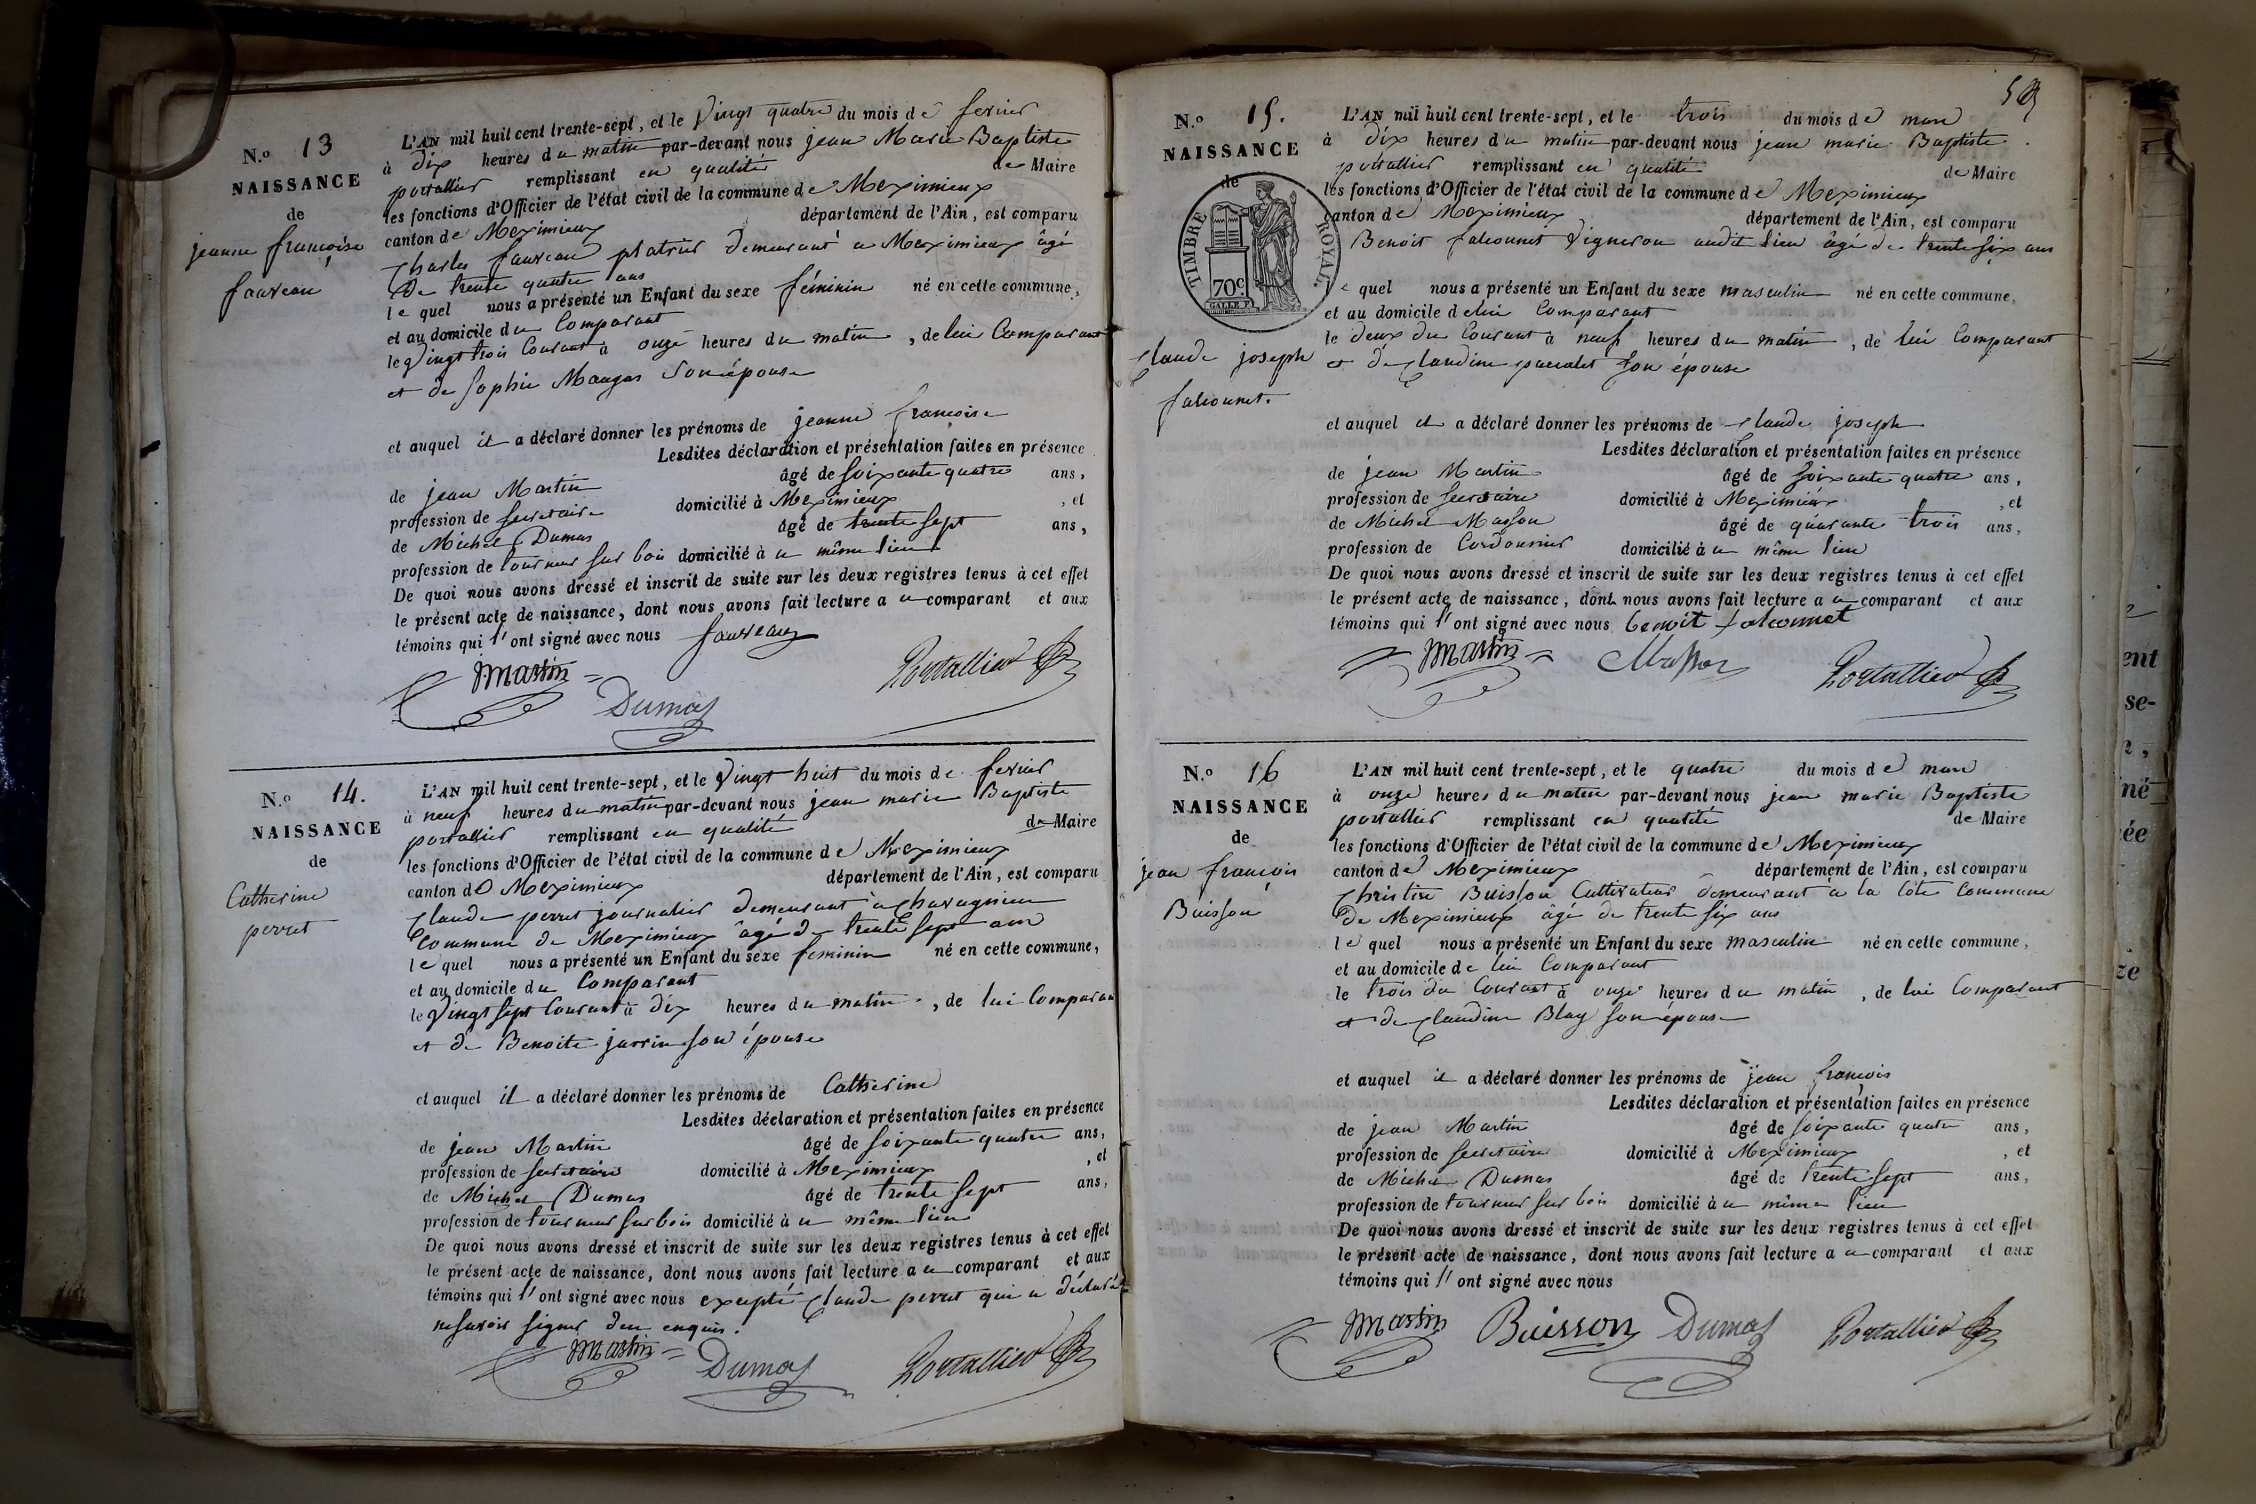 N.o 13
NAISSANCE
de
jeanne françoise
faureau
L'AN mil huit cent trente-sept, et le Vingt quatre du mois de fevrier
à dix heures du matin par-devant nous jean Marie Baptiste
portallier remplissant en qualité de Maire
les fonctions d'Officier de l'état civil de la commune de Meximieux
canton de Meximieux département de l'Ain, est comparu
Charles faureau platrier demeurant a Meximieux âgé
de trente quatre ans
le quel nous a présenté un Enfant du sexe féminin né en cette commune,
et au domicile du Comparant
le Vingt trois Courant à onze heures du matin, de lui Comparant
et de Sophie Maugas son épouse
et auquel il a déclaré donner les prénoms de jeanne francoise
Lesdites déclaration et présentation faites en présence
de jean Martin âgé de soixante quatre ans,
profession de secretaire domicilié à Meximieux, et
de Michel Dumas âgé de trente sept ans,
profession de tourneur sur bois domicilié à u même lieu
De quoi nous avons dressé et inscrit de suite sur les deux registres tenus à cet effet
le présent acte de naissance, dont nous avons fait lecture a u comparant et aux
témoins qui l'ont signé avec nous faureau
JMartin Dumas Portallier
N.o 14.
NAISSANCE
de
Catherine
perret
L'AN mil huit cent trente-sept, et le Vingt huit du mois de fevrier
à neuf heures du matin par-devant nous jean marie Baptiste
portallier remplissant en qualité de Maire
les fonctions d'Officier de l'état civil de la commune de Meximieux
canton de Meximieux département de l'Ain, est comparu
Claude perret journalier demeurant à Chavagnieu
Commune de Meximieux âgé de trente sept ans
le quel nous a présenté un Enfant du sexe feminin né en cette commune,
et au domicile du Comparant
le Vingt sept Courant à dix heures du matin, de lui Comparant
et de Benoite jarrin son épouse
et auquel il a déclaré donner les prénoms de Catherine
Lesdites déclaration et présentation faites en présence
de jean Martin âgé de soixante quatre ans,
profession de secretaire domicilié à Meximieux, et
de Michel Dumas âgé de trente sept ans,
profession de tourneur sur bois domicilié à u même lieu
De quoi nous avons dressé et inscrit de suite sur les deux registres tenus à cet effet
le présent acte de naissance, dont nous avons fait lecture a u comparant et aux
témoins qui l'ont signé avec nous excepté Claude perret qui a déclaré
ne savoir signer de ce enquis.
JMartin Dumas Portallier
N.o 15.
NAISSANCE
de
TIMBRE ROYAL
70c.
Claude joseph
falconnet.
L'AN mil huit cent trente-sept, et le trois du mois de mars
à dix heures du matin par-devant nous jean marie Baptiste
portallier remplissant en qualité de Maire
les fonctions d'Officier de l'état civil de la commune de Meximieux
canton de Meximieux département de l'Ain, est comparu
Benoit falconnet Vigneron audit lieu âgé de trente six ans
le quel nous a présenté un Enfant du sexe masculin né en cette commune,
et au domicile de lui Comparant
le deux du Courant à neuf heures du matin, de lui Comparant
et de Claudine son épouse
et auquel il a déclaré donner les prénoms de Claude joseph
Lesdites déclaration et présentation faites en présence
de jean Martin âgé de soixante quatre ans,
profession de secretaire domicilié à Meximieux, et
de Michel Masson âgé de quarante trois ans,
profession de Cordonnier domicilié à u même lieu
De quoi nous avons dressé et inscrit de suite sur les deux registres tenus à cet effet
le présent acte de naissance, dont nous avons fait lecture a u comparant et aux
témoins qui l'ont signé avec nous benoit falconnet
JMartin Masson Portallier
N.o 16
NAISSANCE
de
jean françois
Buisson
L'AN mil huit cent trente-sept, et le quatre du mois de mars
à onze heures du matin par-devant nous jean marie Baptiste
portallier remplissant en qualité de Maire
les fonctions d'Officier de l'état civil de la commune de Meximieux
canton de Meximieux département de l'Ain, est comparu
Christin Buisson Cultivateur demeurant à la Côte Commune
de Meximieux âgé de trente six ans
le quel nous a présenté un Enfant du sexe masculin né en cette commune,
et au domicile de lui Comparant
le trois du Courant à onze heures du matin, de lui Comparant
et de Claudine Blay son épouse
et auquel il a déclaré donner les prénoms de jean françois
Lesdites déclaration et présentation faites en présence
de jean Martin âgé de soixante quatre ans,
profession de secretaire domicilié à Meximieux, et
de Michel Dumas âgé de trente sept ans,
profession de tourneur sur bois domicilié à u même lieu
De quoi nous avons dressé et inscrit de suite sur les deux registres tenus à cet effet
le présent acte de naissance, dont nous avons fait lecture a u comparant et aux
témoins qui l'ont signé avec nous
JMartin Buisson Dumas Portallier